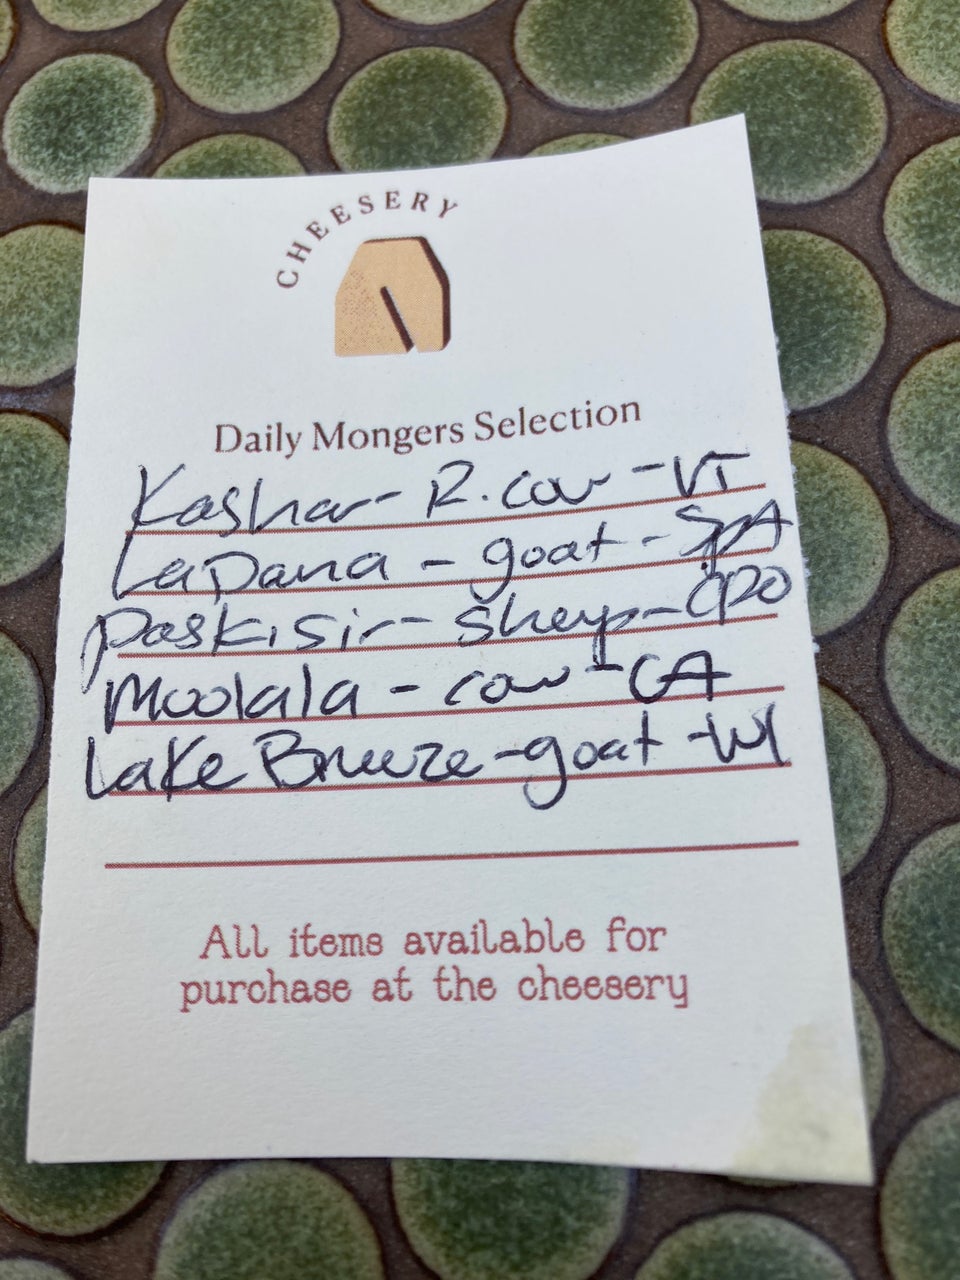 CHEESERY
Daily Mongers Selection
Kashar - R. cow - VT
La Dama - goat - SPA
Paski sir - sheep - CRO
Moolala - cow - CA
Lake Breeze - goat - WI
All items available for
purchase at the cheesery